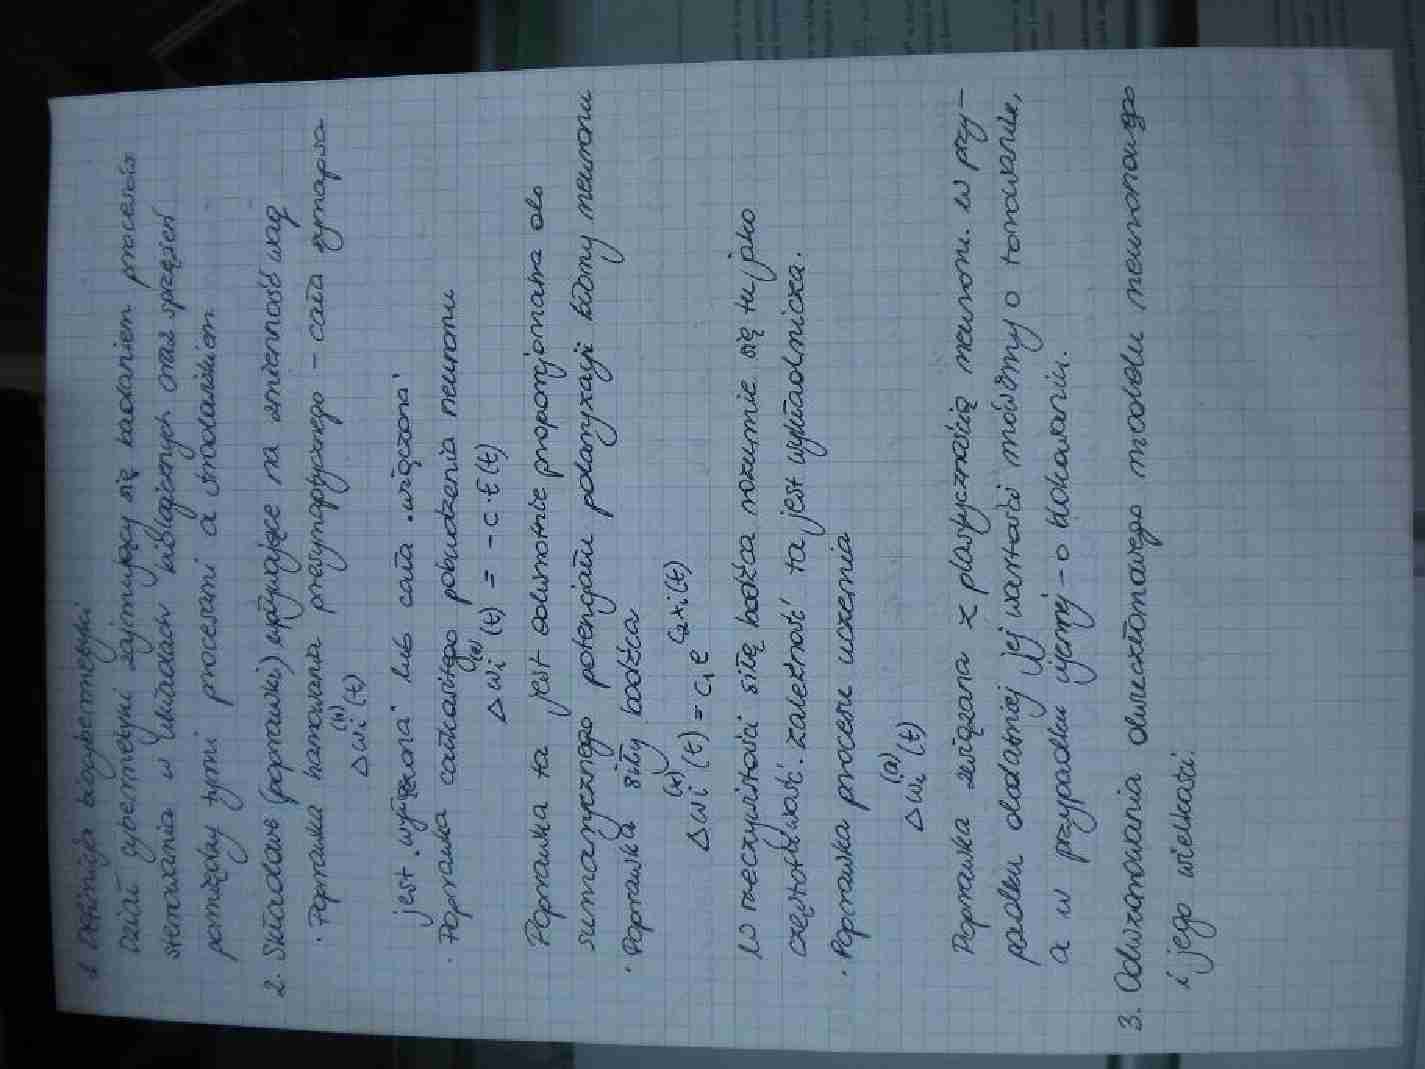 1. Definicja biocybernetyki
Dział cybernetyki zajmujący się badaniem procesów
sterowania w układach biologicznych oraz sprzężeń
pomiędzy tymi procesami a środowiskiem
2. Składowe (poprawki) wpływające na zmienność wag
· Poprawka hamowania presynaptycznego - cała synapsa
Δwi⁽ʰ⁾(t)
jest „wyłączona" lub cała „włączona"
· Poprawka całkowitego pobudzenia neuronu
Δwi⁽ᵉ⁾(t) = -c·E(t)
Poprawka ta jest odwrotnie proporcjonalna do
sumarycznego potencjału polaryzacji błony neuronu
· Poprawka siły bodźca
Δwi⁽ˣ⁾(t) = c₁e^c₂xi(t)
W rzeczywistości siłę bodźca rozumie się tu jako
częstotliwość. Zależność ta jest wykładnicza.
· Poprawka procesu uczenia
Δwi⁽ᵃ⁾(t)
Poprawka związana z plastycznością neuronu. W przy-
padku dodatniej jej wartości mówimy o torowaniu,
a w przypadku ujemnej - o blokowaniu.
3. Odwzorowania dwuskładnikowego modelu neuronowego
i jego wielkości.